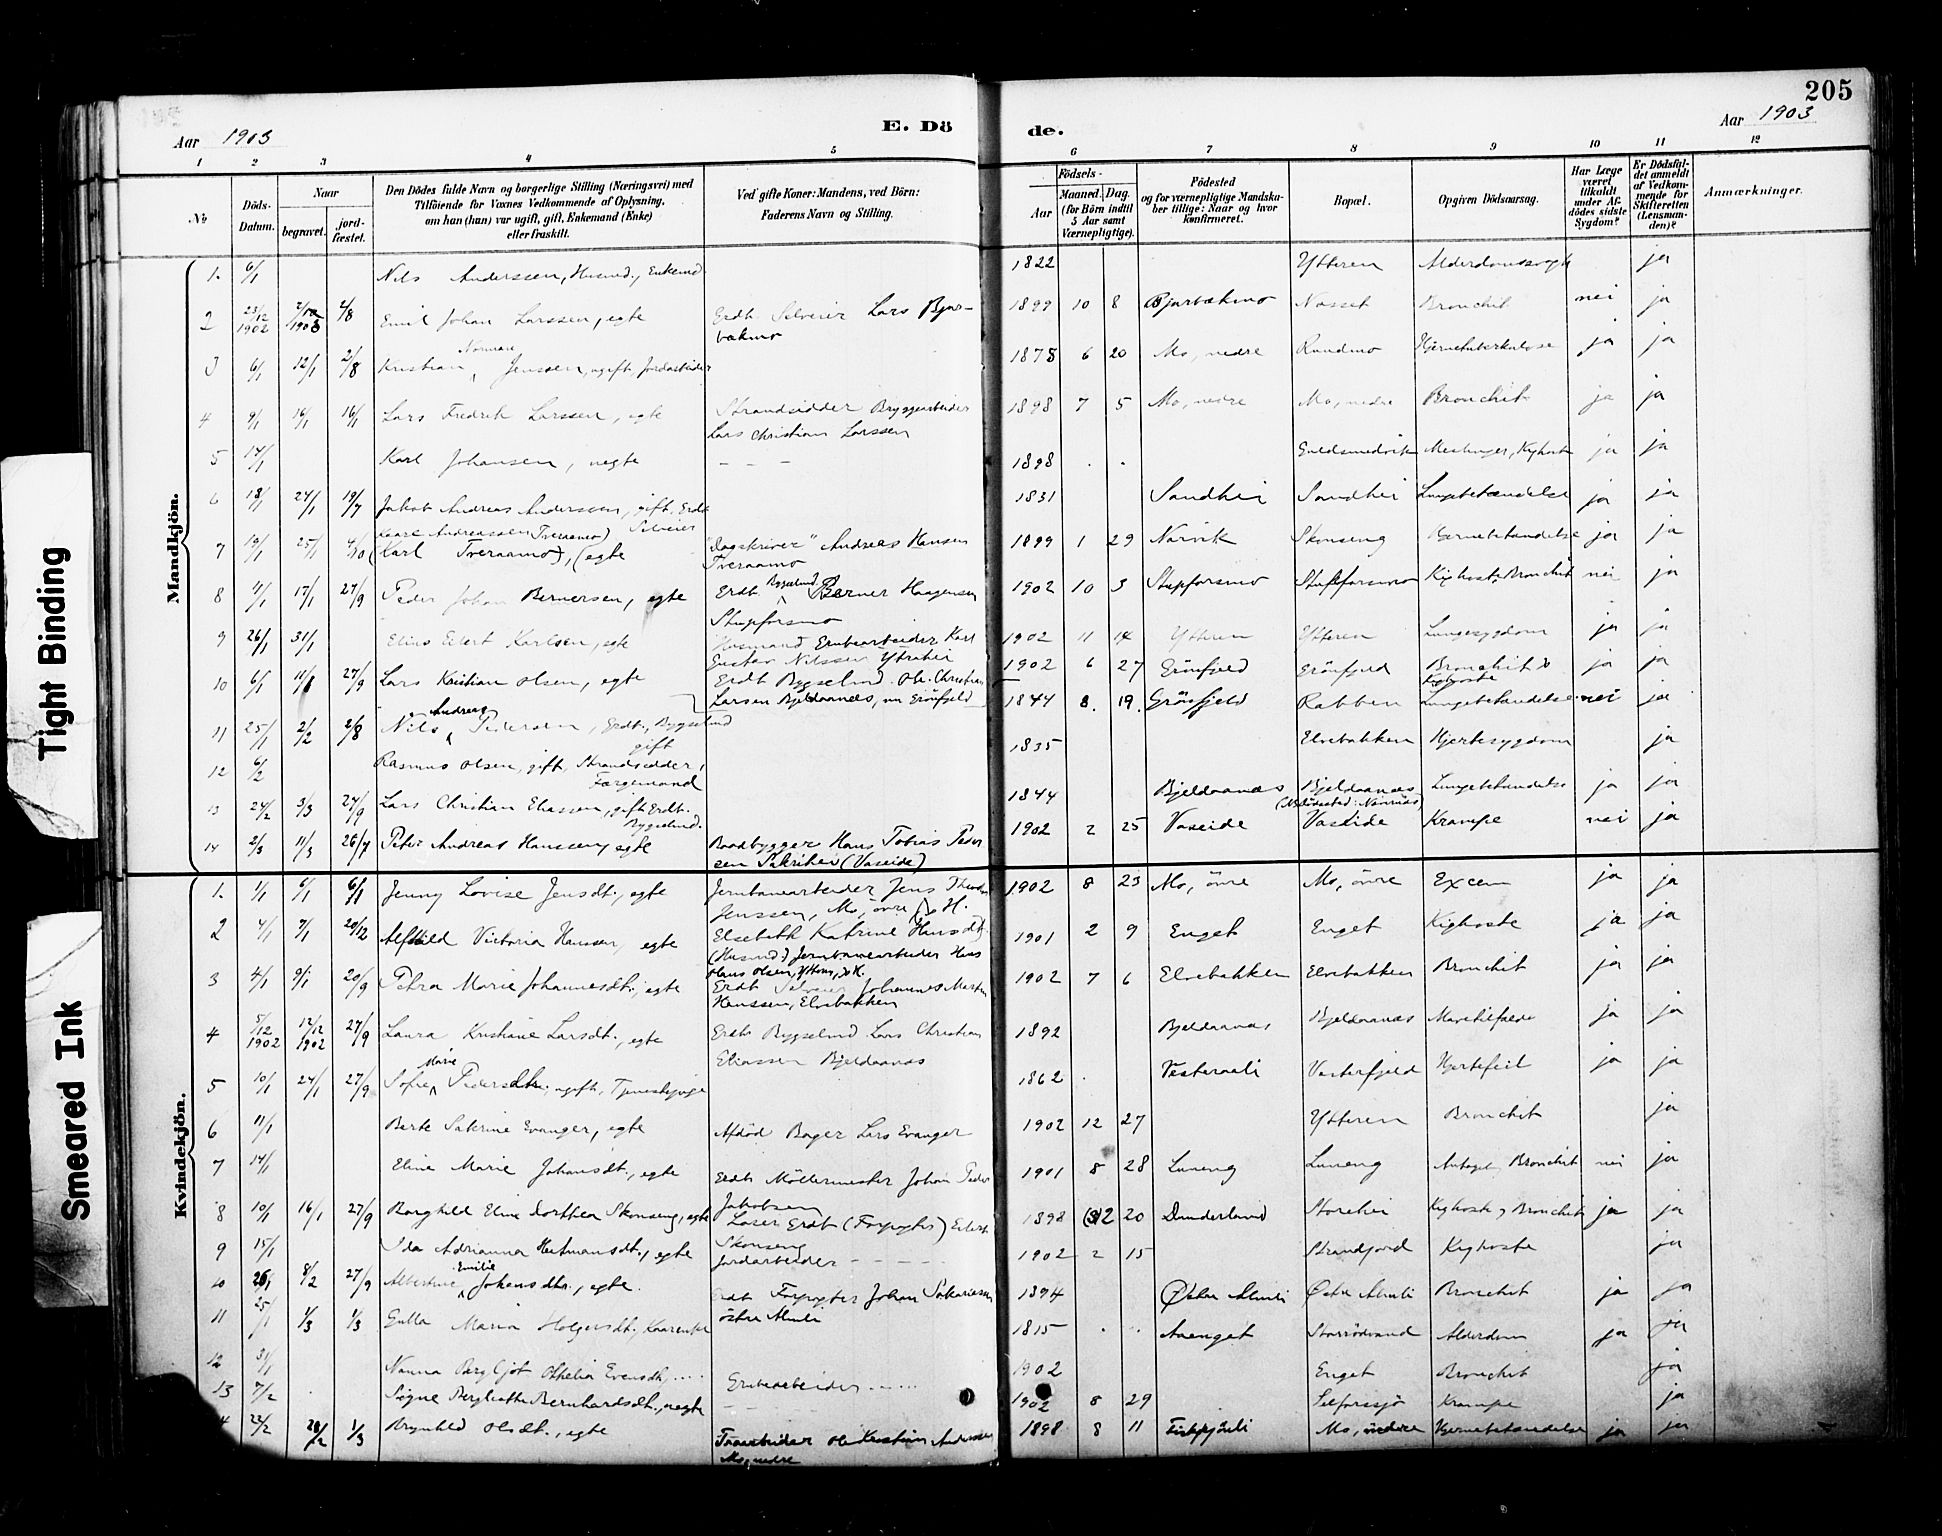 205
Aar 1903
E. Dö
de.
Aar 1903
1 2 3 4 5 6 7 8 9 10 11 12
No
Döds-Datum.
Naar
begravet.
jord-fæstet.
Den Dödes fulde Navn og borgerlige Stilling (Næringsvei) med
Tilföiende for Voxnes Vedkommende af Oplysning,
om han (hun) var ugift, gift, Enkemand (Enke)
eller fraskilt.
Ved gifte Koner: Mandens, ved Börn:
Faderens Navn og Stilling.
Födsels-
Aar
Maaned. Dag.
(for Börn indtil
5 Aar samt
Værnepligtige).
Födested
og for værnepligtige Mandska-
ber tillige: Naar og hvor
konfirmeret.
Bopæl.
Opgiven Dödsaarsag.
Har Læge
været
tilkaldt
under Af-
dödes sidste
Sygdom?
Er Dödsfal-
det anmeldt
af Vedkom-
mende for
Skifteretten
(Lensman-
den)?
Anmærkninger.
Mandkjön.
1. 6/1 Nils Anderssen, Husmd., Enkemd. 1822 Ytteren ja
2 23/12 1902 4/8 Emil Johan Larssen, egte Erdb. Selveier Lars Bjør-
bækmo 1899 10 8 Bjørbækmo Næsset Bronchit nei ja
3 6/1 12/1 2/8 Kristian Normann Jenssen, ugift, Jordarbeider 1878 6 20 Mo, nedre Rundmo Hjernetuberkulose ja ja
4 9/1 16/1 16/1 Lars Fredrik Larssen, egte Strandsidder Bryggearbeider
Lars Christian Larssen 1898 7 5 Mo, nedre Mo, nedre Bronchit ja ja
5 14/1 Karl Johansen, uegte – – – 1898 . . Guldsmedvik Kighoste ja ja
6 18/1 24/1 19/7 Jakob Andreas Anderssen, gift, Erdb.
Selveier 1831 Sandhei Sandhei Lungebetændelse ja ja
7 19/1 25/1 4/10 Kaare Andreassen Tveraamo)
(Karl Tveraamo), (egte "Dagskriver" Andreas Hansen
Tveraamo 1899 1 29 Narvik Skonseng Hjernebetændelse ja ja
8 4/1 17/1 27/9 Peder Johan Bernersen, egte Erdb. Bygselmd. Berner Haagensen
Stupforsmo 1902 10 3 Stupforsmo Stupforsmo Kighoste, Bronchit nei ja
9 26/1 31/1 Elius Edert Karlsen, egte Husmand Grubearbeider Karl
Gustav Nilssen Ytrehei 1902 11 14 Ytteren Ytteren Lungesygdom ja ja
10 6/1 27/9 Lars Kristian Olsen, egte Erdb. Bygselmd. Ole Christian
Larsen Bjeldaanæs, nu Grönfjeld 1902 6 27 Grönfjeld Grönfjeld Bronchit &
Kighoste ja ja
11 25/1 2/2 2/8 Nils Andreas Pedersen, Erdb. Bygselmd
gift 1844 8. 19. Grönfjeld Rabben Lungebetændelse nei ja
12 6/2 Rasmus Olsen, gift, Strandsidder,
Færgemand 1835 Elvebakken Hjertesygdom ja
13 24/2 3/3 27/9 Lars Christian Eliassen, gift Erdb.
Bygselmd. 1844 Bjeldaanæs Bjeldaanæs
Lungebetændelse ja ja
14 2/3 11/3 26/7 Peter Andreas Hanssen, egte Baadbygger Hans Tobias Peder
sen (Vaseide) 1902 2 25 Vaseide Vaseide Krampe nei ja
Kvindekjön.
1. 1/1 6/1 6/1 Jenny Lovise Jensdt., egte Jernbanearbeider Jens
Jenssen, Mo, övre 1902 8 23 Mo, övre Mo, övre Excem ja ja
2 4/1 7/1 20/12 Alfhild Victoria Hanssen, egte Elsebeth Katrine Hansdt.
(Husmd.) Jernbanearbeider Hans
Olaus Olsen, Ytteren 1901 2 9 Enget Enget Kighoste ja ja
3 4/1 9/1 20/9 Petra Marie Johannesdt., egte Erdb. Selveier Johannes Martin
Hanssen, Elvebakken 1902 7 6 Elvebakken Elvebakken Bronchit ja ja
4 5/12 1902 12/12 1902 27/9 Laura Kristiane Larsdt., egte Erdb. Bygselmd Lars Christian
Eliassen Bjeldaanæs 1892 Bjeldaanæs Bjeldaanæs ja ja
5 10/1 24/1 27/9 Sofie Marie Pedersdtr. ugift, Tjenestepige 1862 . Vesterfjeld Hjertefeil ja ja
6 11/1 Berte Katrine Evanger, egte Afdöd Bager Lars Evanger 1902 12 27 Ytteren Bronchit ja
7 14/1 Eline Marie Johansdt., egte Erdb. Möllermester Johan Peder
Jakobsen 1901 8 28 Luneng Luneng Bronchit nei ja
8 10/1 16/1 27/9 Borghild Eline Dorthea Skonseng, egte Erdb. (Forpagter)
Skonseng 1898 12 20 Dunderland Storehei Kighoste, Bronchit ja ja
9 15/1 Ida Adrianna Hartmansdt., egte Jordarbeider – – – 1902 2 15 Strandjord Kighoste ja
10 8/2 27/9 Albertine Emilie Johansdtr., egte. Erdb. Forpagter Johan Sakariassen
östre Almli 1894 Østre Almli Østre Almli Bronchit ja ja
11 25/1 1/3 1/3 Gulla Maria Holgersdt. 1815 . . Aaenget Alderdom ja ja
12 31/1 Nanna Bergljot Othelia Evensdt, .... Grubearbeider ...... 1902 Enget Bronchit ja
13 7/2 Signe Bergliotte Bernhardsdt., uegte – – – – 1902 8 29 Selforssjö Krampe ja
22/2 28/2 1/3 Brynhild Olsdt., egte Ole Kristian Anderssen
Mo, nedre 1898 8 11 Mo, nedre Hjernebetændelse ja ja
Tight Binding
Smeared Ink